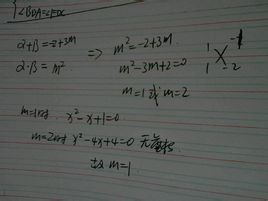 ∠BDA=∠EDC
α+β=-2+3m
α·β=m²
⇒ m²=-2+3m
m²-3m+2=0
1 -1
1 -2
m=1或m=2
m=1时. x²-x+1=0
m=2时 x²-4x+4=0 无
故 m=1